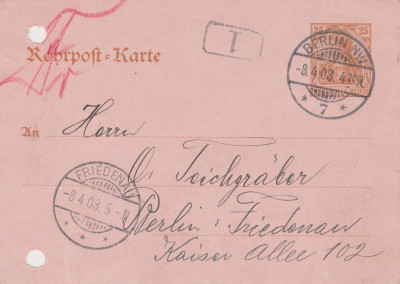 25 25
Rohrpost-Karte
1
BERLIN N.W.
-8.4.03. 4-
* 7 *
An Herrn
O. Teichgräber
FRIEDENAU
-8.4.03. 5-
* * *
Berlin-Friedenau
Kaiser Allee 102